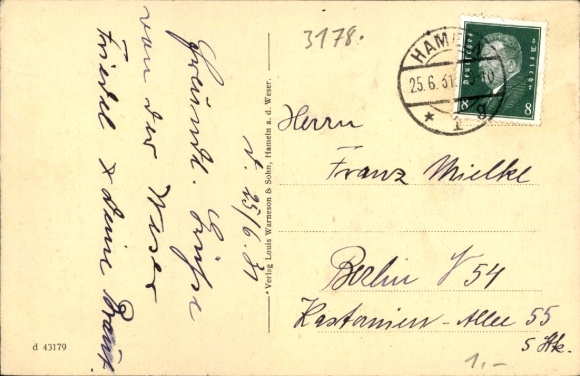 3178.
HAMELN
25.6.31
* 1 g
Deutsches Reich
8 8
d. 25/6.31
Freundl. Grüße
von der Weser
Friedel & Deine Braut.
* Verlag Louis Warneson & Sohn, Hameln a. d. Weser.
Herrn
Franz Mielke
Berlin 54
Kastanien-Allee 55
d 43179
1.-